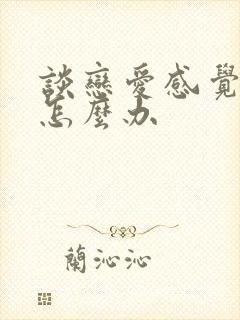 談戀愛感覺
怎麼办
蘭沁沁